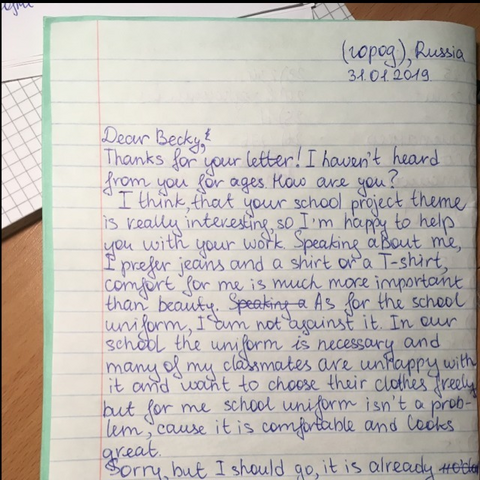 (город), Russia
31.01.2019.
Dear Becky,
Thanks for your letter! I haven't heard
from you for ages. How are you?
I think, that your school project theme
is really interesting, so I'm happy to help
you with your work. Speaking about me,
I prefer jeans and a shirt or a T-shirt,
comfort for me is much more important
than beauty. Speaking a As for the school
uniform, I am not against it. In our
school the uniform is necessary and
many of my classmates are unhappy with
it and want to choose their clothes freely,
but for me school uniform isn't a prob-
lem, cause it is comfortable and looks
great.
Sorry, but I should go, it is already